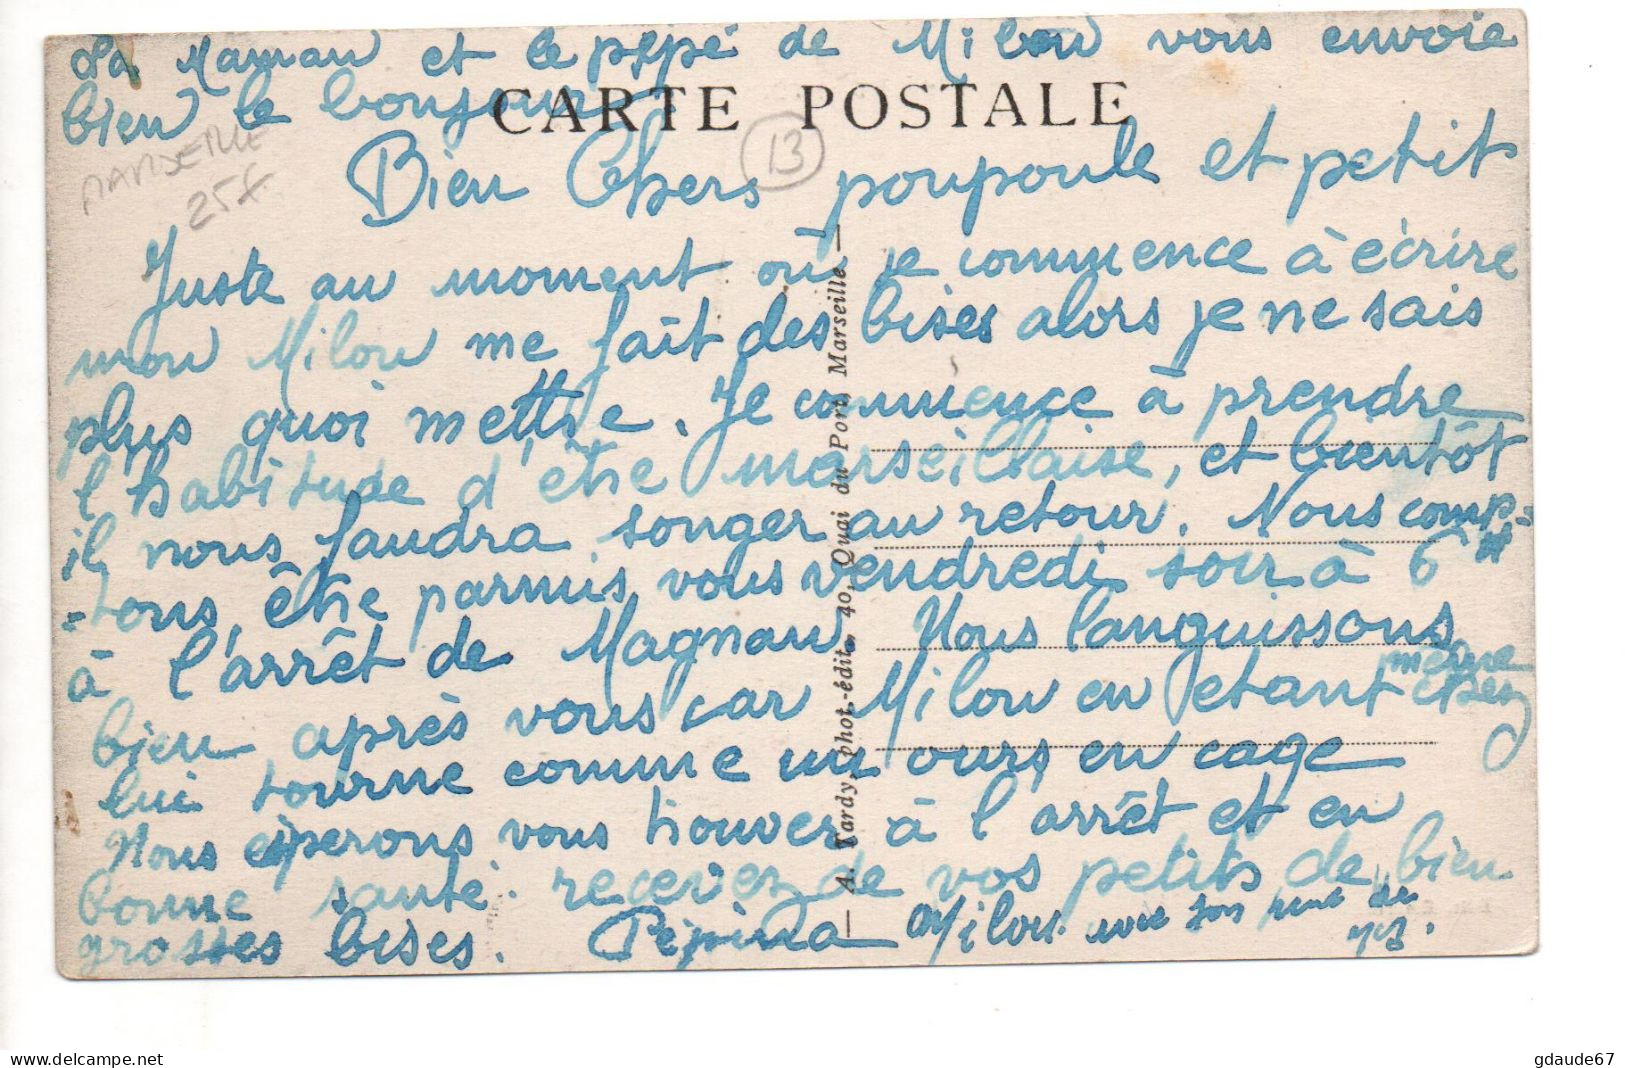 La Maman et le pépé de Milou vous envoie
bien le bonjour
CARTE POSTALE
MARSEILLE
25f
13
Bien Chers poupoule et petit
Juste au moment où je commence à écrire
mon Milou me fait des bises alors je ne sais
plus quoi mettre. Je commence à prendre
l'habitude d'être marseillaise, et bientôt
il nous faudra songer au retour. Nous comp-
-tons être parmis vous vendredi soir à 6H
à l'arrêt de Magnan. Nous languissons
bien après vous car Milou en etant même chez
lui tourne comme un ours en cage
Nous esperons vous trouver à l'arrêt et en
bonne santé. recevez de vos petits de bien
grosses bises. Pépina Milou
A. Tardy, phot.-édit., 40, Quai du Port, Marseille
delcampe.net
gdaude67